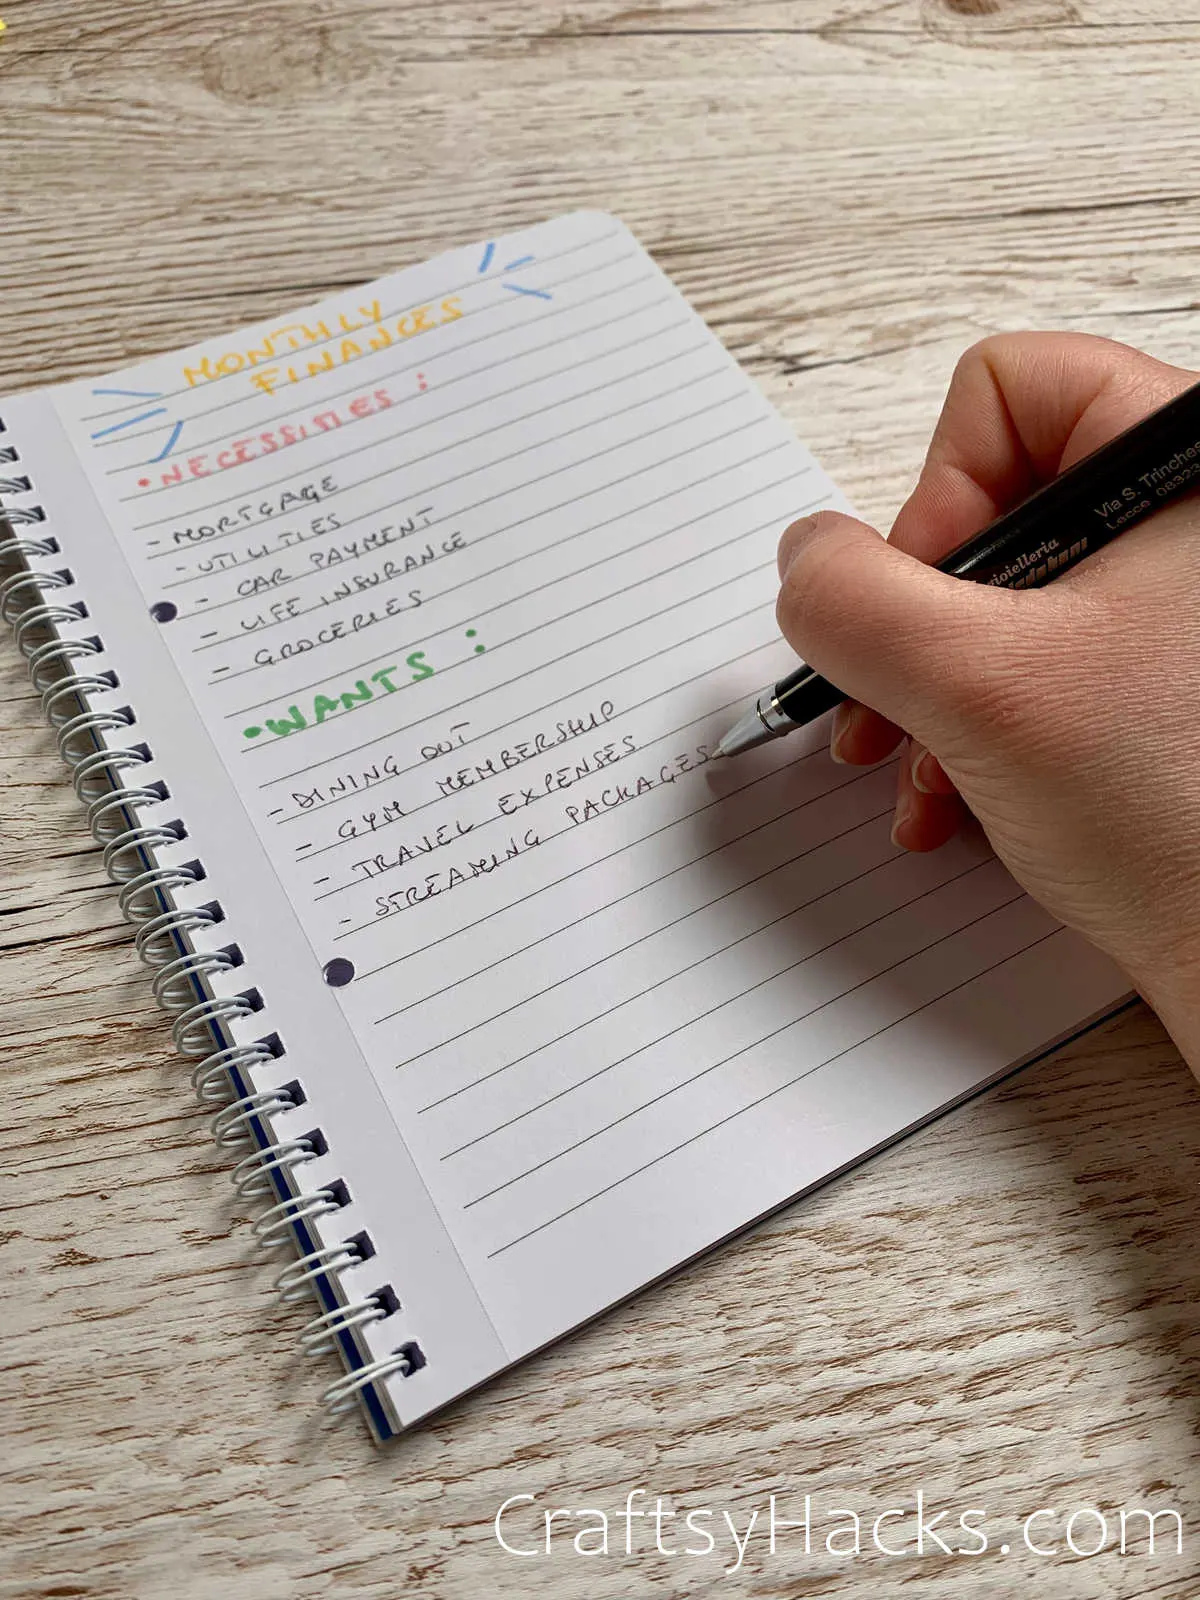 MONTHLY
FINANCES
• NECESSITIES :
- MORTGAGE
- UTILITIES
- CAR PAYMENT
- LIFE INSURANCE
- GROCERIES
• WANTS :
- DINING OUT
- GYM MEMBERSHIP
- TRAVEL EXPENSES
- STREAMING PACKAGES
Via S. Trinches
Lecce 0832
gioielleria
CraftsyHacks.com